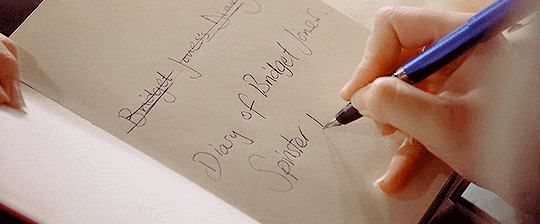 Bridget Jones's Diary
Diary of Bridget Jones.
Spinster